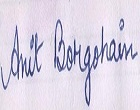 Anit Borgohain